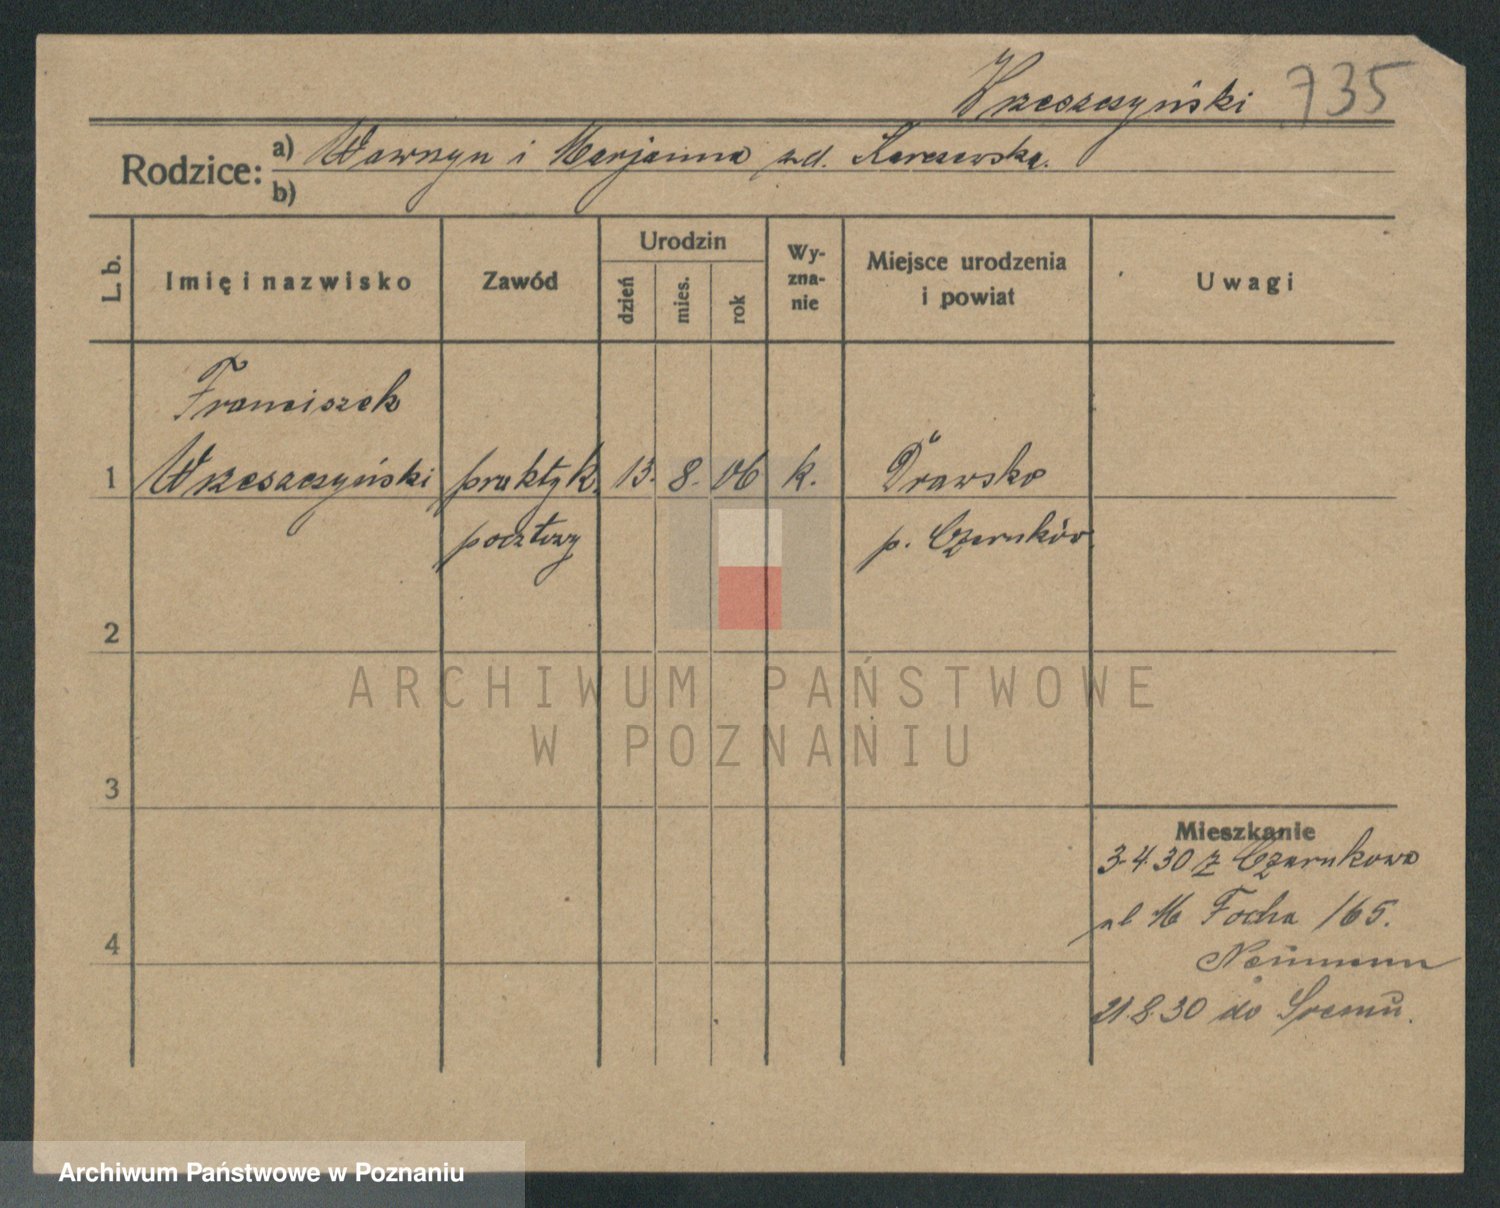 Wrzeszczyński 735
Rodzice: a) Wawrzyn i Marjanna zd. Karczewska.
b)
L. b. Imię i nazwisko Zawód Urodzin dzień mies. rok Wyznanie Miejsce urodzenia i powiat Uwagi
Franciszek
1 Wrzeszczyński praktyk. 13. 8. 06 k. Drawsko
pocztowy p. Czarnków.
2
ARCHIWUM PAŃSTWOWE
W POZNANIU
3
Mieszkanie
3.4.30 z Czarnkowa
ul M Focha 165.
4
Neumann
21.8.30 do Śremu.
Archiwum Państwowe w Poznaniu